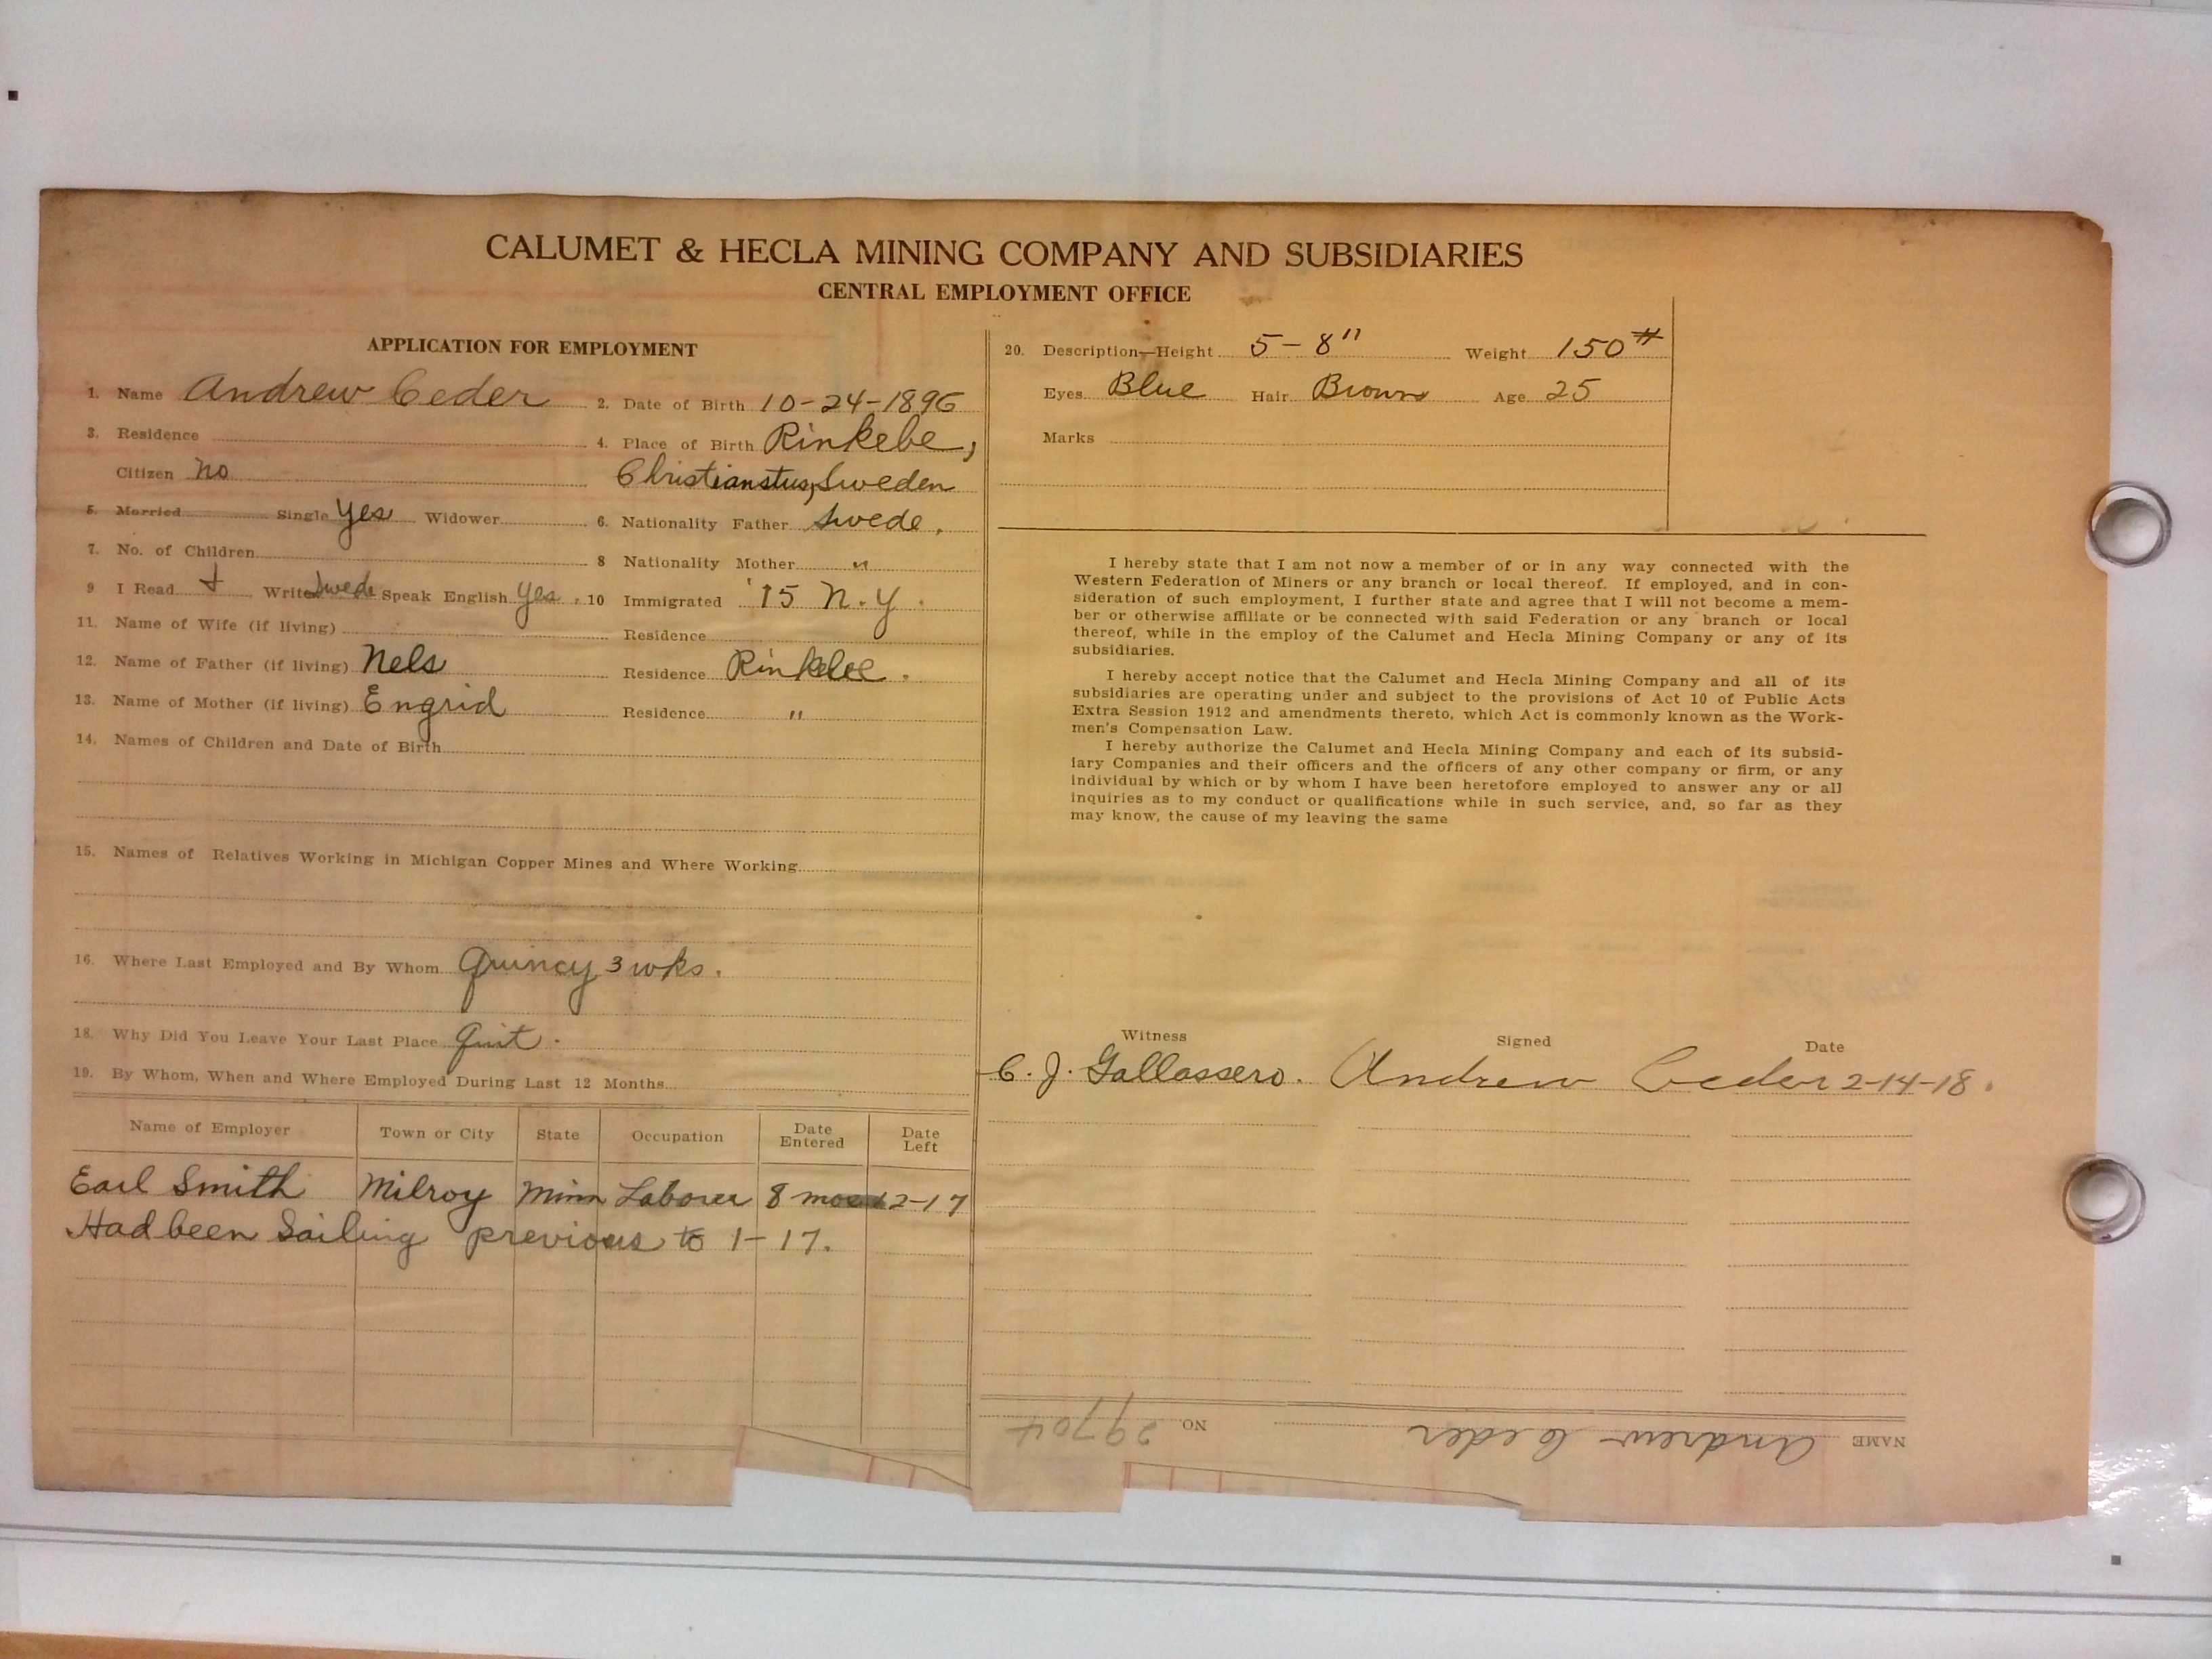 CALUMET & HECLA MINING COMPANY AND SUBSIDIARIES
CENTRAL EMPLOYMENT OFFICE
APPLICATION FOR EMPLOYMENT
1. Name Andrew Ceder 2. Date of Birth 10-24-1896
3. Residence 4. Place of Birth Rinkebe,
Citizen no Christianstus, Sweden
5. Married Single yes Widower 6. Nationality Father Swede.
7. No. of Children 8 Nationality Mother "
9 I Read + Write Swede Speak English yes. 10 Immigrated '15 N.Y.
11. Name of Wife (if living) Residence
12. Name of Father (if living) Nels Residence Rinkebe.
13. Name of Mother (if living) Engrid Residence "
14. Names of Children and Date of Birth
15. Names of Relatives Working in Michigan Copper Mines and Where Working
16. Where Last Employed and By Whom Quincy 3 wks.
18. Why Did You Leave Your Last Place Quit.
19. By Whom, When and Where Employed During Last 12 Months
Name of Employer Town or City State Occupation Date Entered Date Left
Earl Smith Milroy Minn Laborer 8 mos 12-17
Had been Sailing previous to 1-17.
20. Description—Height 5-8" Weight 150#
Eyes Blue Hair Brown Age 25
Marks
I hereby state that I am not now a member of or in any way connected with the
Western Federation of Miners or any branch or local thereof. If employed, and in con-
sideration of such employment, I further state and agree that I will not become a mem-
ber or otherwise affiliate or be connected with said Federation or any branch or local
thereof, while in the employ of the Calumet and Hecla Mining Company or any of its
subsidiaries.
I hereby accept notice that the Calumet and Hecla Mining Company and all of its
subsidiaries are operating under and subject to the provisions of Act 10 of Public Acts
Extra Session 1912 and amendments thereto, which Act is commonly known as the Work-
men's Compensation Law.
I hereby authorize the Calumet and Hecla Mining Company and each of its subsid-
iary Companies and their officers and the officers of any other company or firm, or any
individual by which or by whom I have been heretofore employed to answer any or all
inquiries as to my conduct or qualifications while in such service, and, so far as they
may know, the cause of my leaving the same
Witness Signed Date
C. J. Gallassero. Andrew Ceder 2-14-18.
NAME Andrew Ceder NO. 29704